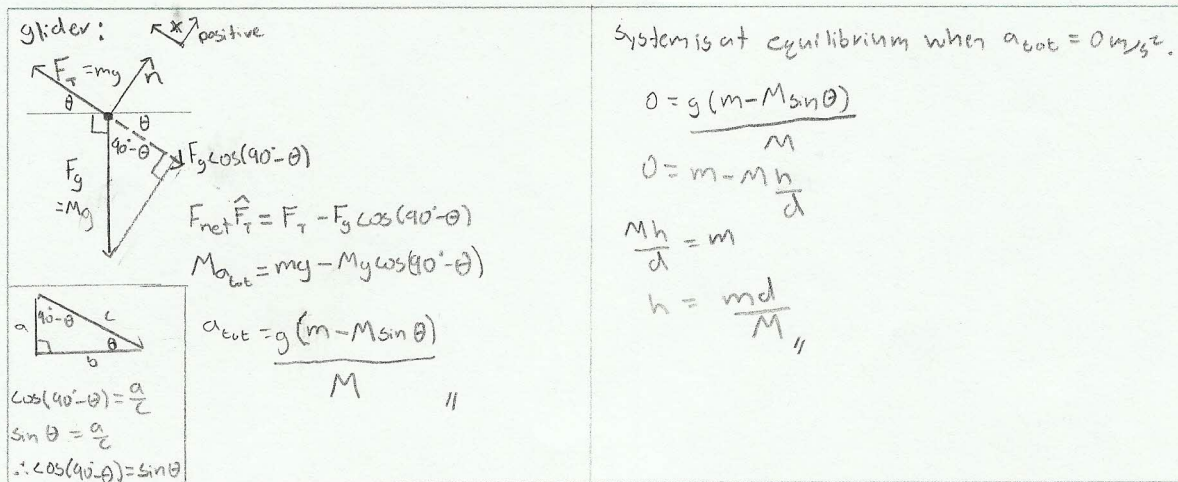 glider:
x
positive
F_T = mg
n̂
θ
θ
90°-θ
F_g cos(90°-θ)
F_g
=Mg
F_net F̂_T = F_T - F_g cos(90°-θ)
Ma_tot = mg - Mg cos(90°-θ)
a_tot = g(m - M sin θ)
M //
a
90°-θ
c
θ
b
cos(90°-θ) = a/c
sin θ = a/c
∴ cos(90°-θ) = sin θ
System is at equilibrium when a_tot = 0 m/s².
0 = g(m - M sin θ)
M
0 = m - M h/d
Mh/d = m
h = md/M //